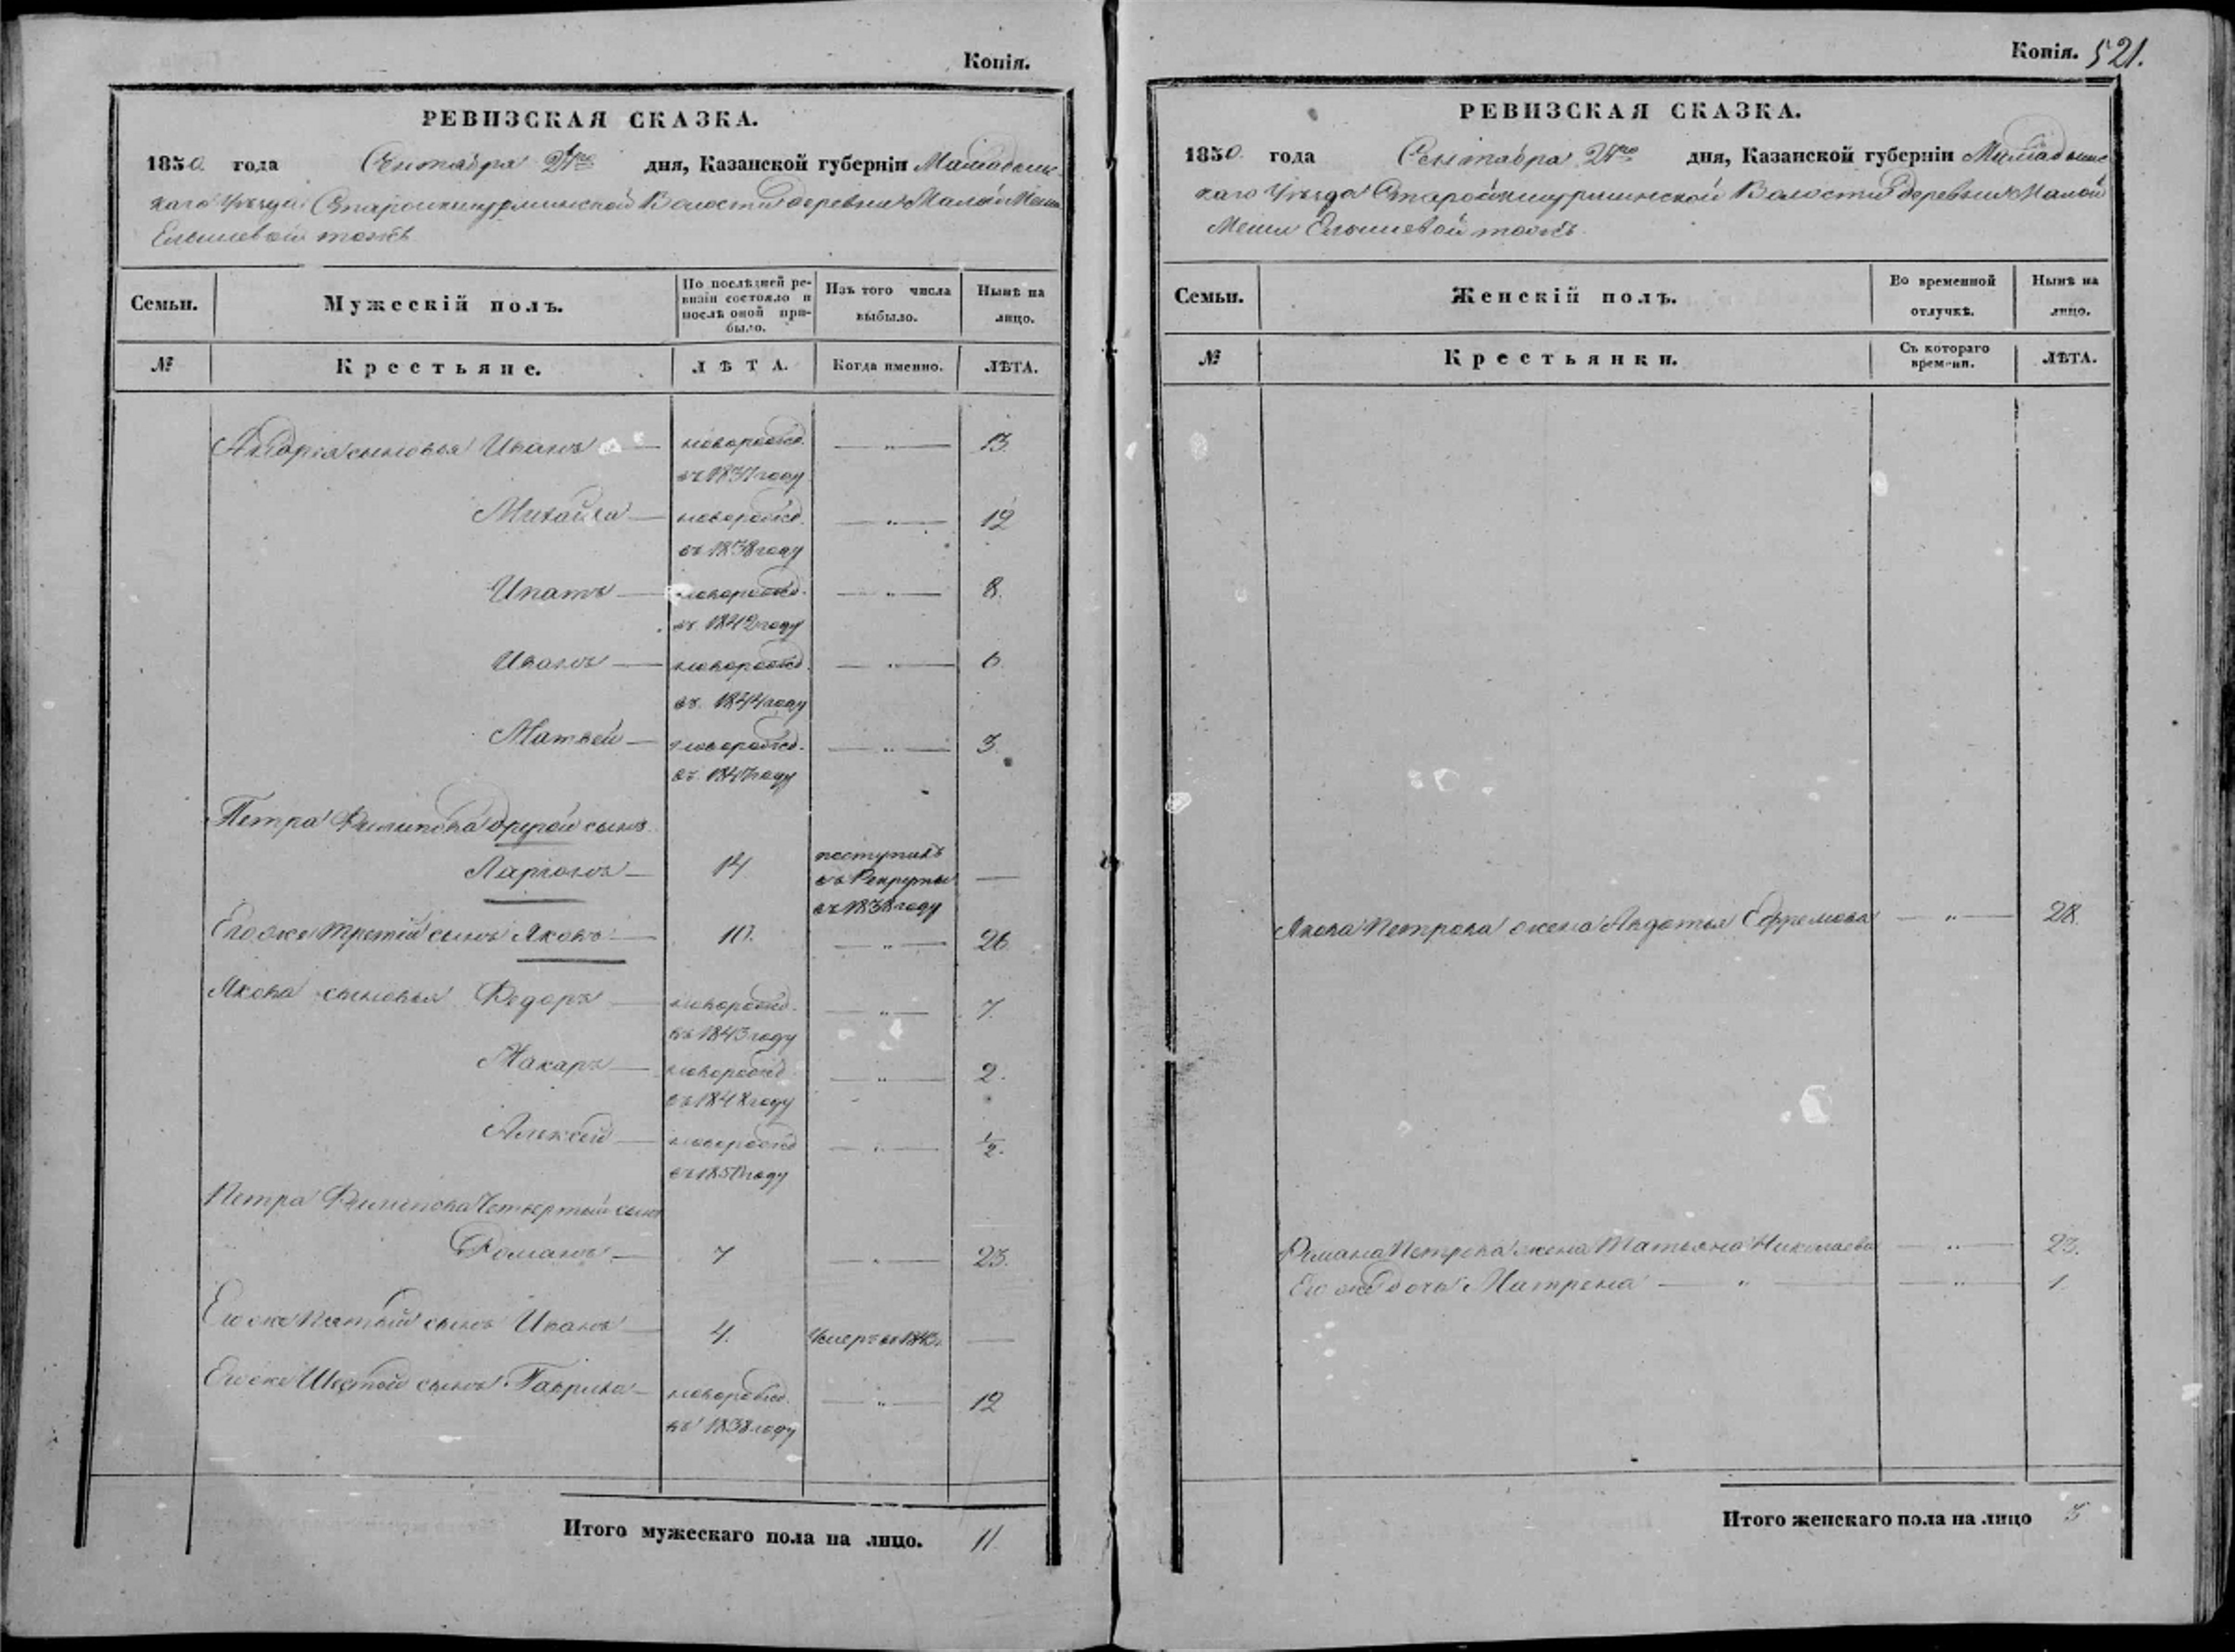 Копія.
РЕВИЗСКАЯ СКАЗКА.
1850 года Сентября 21го дня, Казанской губерніи Мамадыш-
каго Уѣзда Волости деревни Малой Меши
Елышевой тожъ
Семьи.
Мужескій полъ.
По послѣдней ре-
визіи состояло и
послѣ оной при-
было.
Изъ того числа
выбыло.
Нынѣ на
лицо.
№
Крестьяне.
ЛѢТА.
Когда именно.
ЛѢТА.
сыновья Иванъ — новорожд. — " — 13.
въ 1837 году
Михайла — новорожд. — " — 12
въ 1838 году
Ипатъ — новорожд. — " — 8.
въ 1842 году
Иванъ — новорожд. — " — 6
въ 1844 году
Матвей — новорожд. — " — 3.
въ 1847 году
Петра Филипова другой сынъ
Ларіонъ — 14. поступилъ
въ Рекруты —
въ 1838 году
Егоже третій сынъ Яковъ — 10. — " — 26
Якова сыновья Федоръ — новорожд. — " — 7.
въ 1843 году
Макаръ — новорожд. — " — 2.
въ 1848 году
Алексей — новорожд — " — 1/2.
въ 1850 году
Петра Филипова Четвертый сынъ
Романъ — 7 — " — 23.
Егоже Пятый сынъ Иванъ — 4. Умеръ въ —
Егоже Шестой сынъ Гаврила — новорожд. — " — 12
въ 1838 году
Итого мужескаго пола на лицо. 11.
Копія. 521.
РЕВИЗСКАЯ СКАЗКА.
1850 года Сентября 21го дня, Казанской губерніи Мамадышс
каго Уѣзда Волости деревни Малой
Меши Елышевой тожъ.
Семьи.
Женскій полъ.
Во временной
отлучкѣ.
Нынѣ на
лицо.
№
Крестьянки.
Съ котораго
времени.
ЛѢТА.
Якова Петрова жена Авдотья Ефремова — " — 28.
Романа Петрова жена Татьяна Николаева — " — 23.
Его же дочь Матрена — " — — " — 1.
Итого женскаго пола на лицо 3